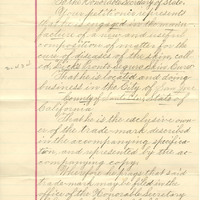 To the Honorable Secretary of State
Your petitioner represents
that he is engaged in the manu-
facture of a new and useful
composition of matter for the
cure of diseases of the skin call-
ed
That he is located and doing
business in the City of San Jose
County of State of
California
That he is the exclusive own-
er of the trade-mark described
in the accompanying specifica-
tion, and represented by the ac-
companying copy.
Wherefore he prays that said
trade-mark may be filed in the
office of the Honorable Secretary